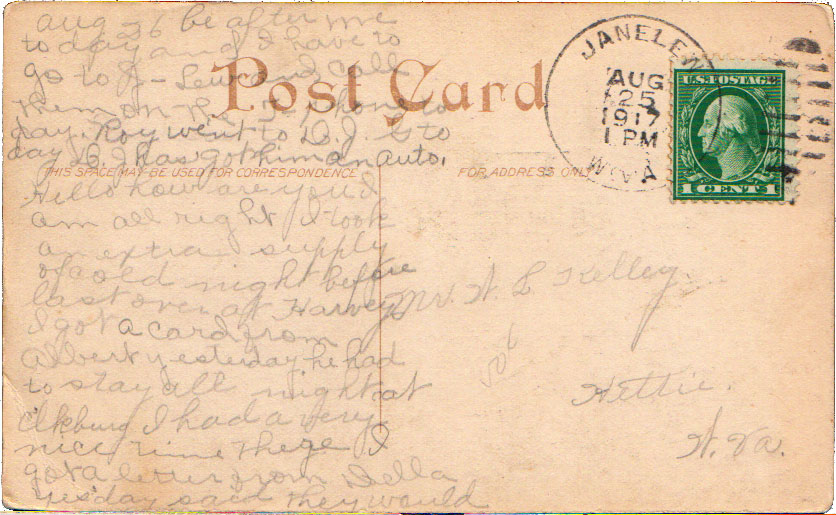 Aug 26 be after me
today and I have to
go to J-Lew and call
them on the phone to
day. Roy went to D.J.s to
day D.J has got him an auto.
Post Card
THIS SPACE MAY BE USED FOR CORRESPONDENCE
FOR ADDRESS ONLY
Hello how are you I
am all right I took
an extra supply
of cold night before
last over at Harveys
I got a card from
Albert yesterday he had
to stay all night at
Elkburg I had a very
nice time there I
got a letter from Della
yesday said they would
JANELEW
AUG
25
1917
1 PM
W.VA
U.S. POSTAGE
1 CENT 1
Mr. W. L. Kelley
Hettie.
W. Va.